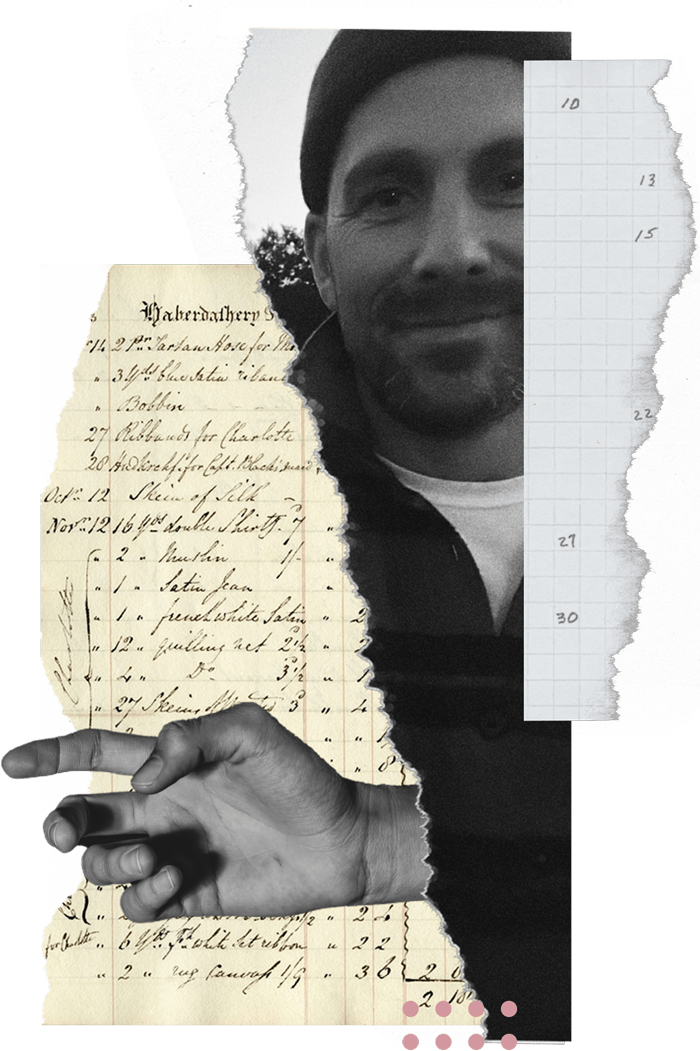 Haberdashery
14 2 Prs Tartan Hose for
" 3 Yds blue satin riband
" Bobbin
27 Ribbands for Charlotte
28 for Capt.
Octr. 12 Skein of Silk
Novr. 12 16 Yds double Shirtg. 7
" 2 " Muslin 1/-
" 1 " Satin Jean "
" 1 " french white Satin " 2
" 12 " quilling net 2½ "
" 4 " Do 3½ " 1
27 Skeins 3 " 4
Charlotte
8
2 6
for Charlotte " 6 Yds white Set ribbon " 2 2
" 2 " rug Canvass 1/9 " 3 6 2 0
2 18
10
13
15
22
27
30